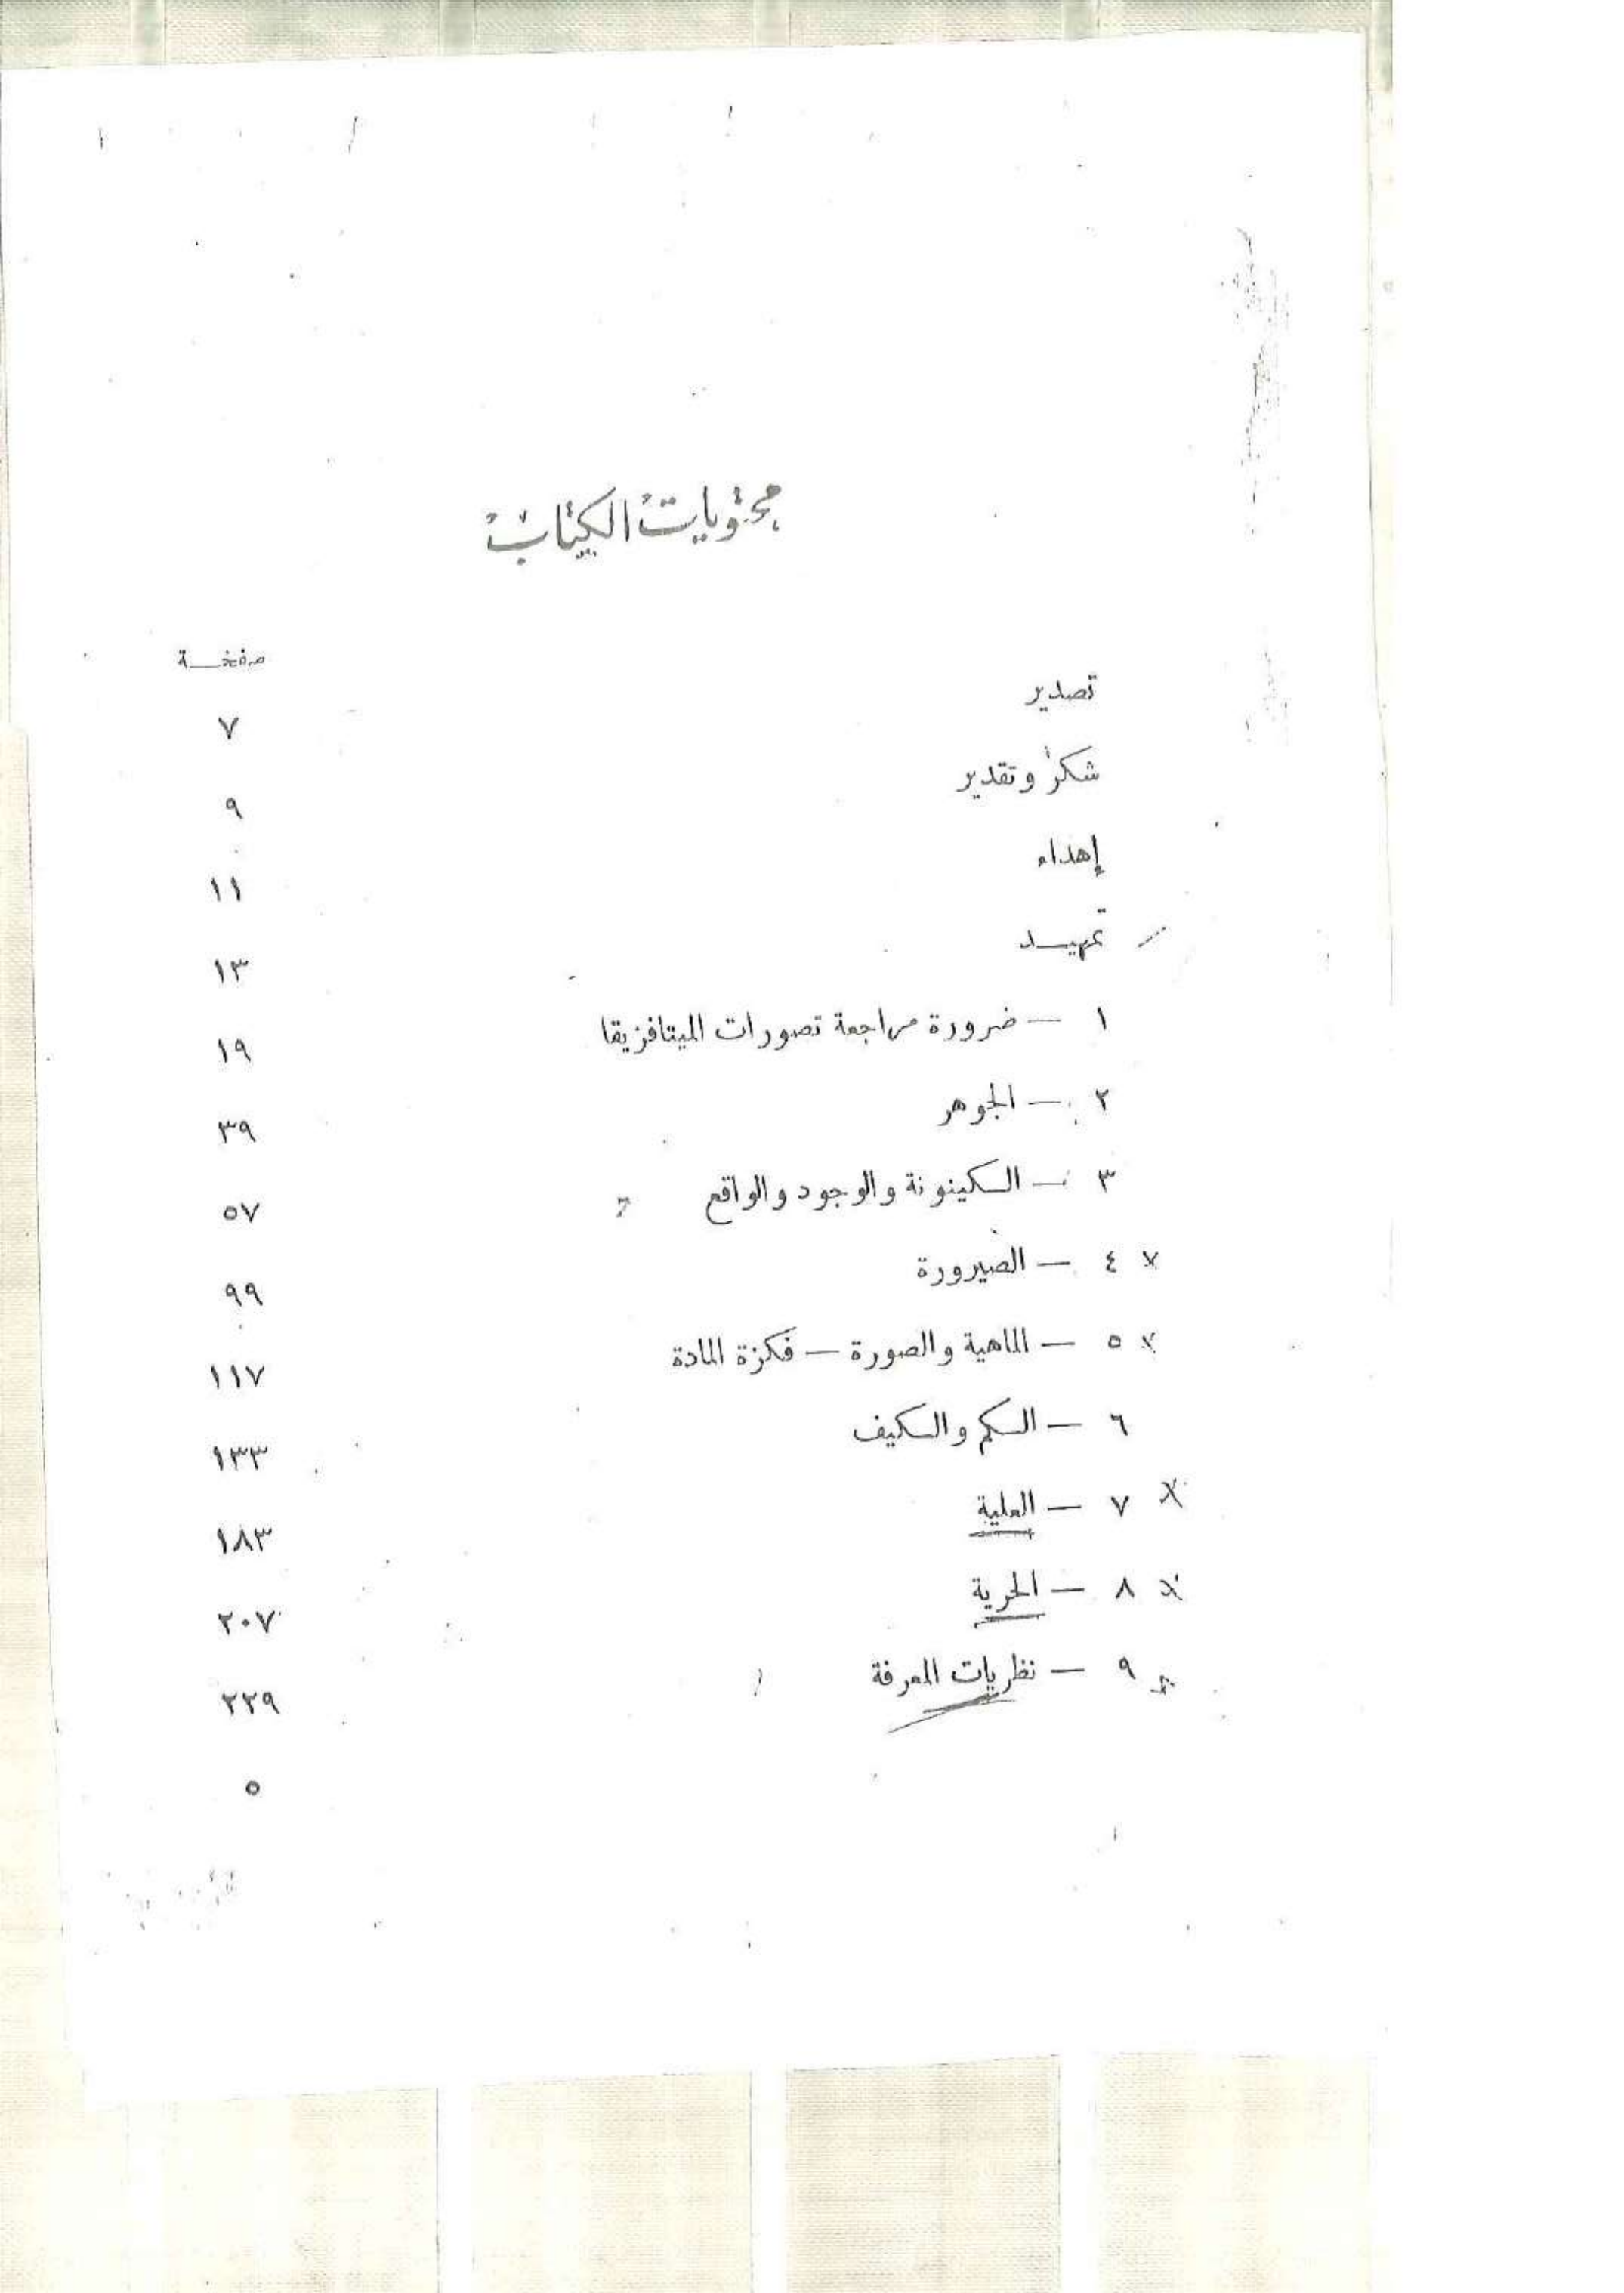 محتويات الكتاب
صفحة
تصدير ٧
شكر وتقدير ٩
إهداء ١١
تمهيد ١٣
١ — ضرورة مراجعة تصورات الميتافزيقا ١٩
٢ — الجوهر ٣٩
٣ — الكينونة والوجود والواقع ٥٧
٤ — الصيرورة ٩٩
٥ — الماهية والصورة — فكرة المادة ١١٧
٦ — الكم والكيف ١٣٣
٧ — العلية ١٨٣
٨ — الحرية ٢٠٧
٩ — نظريات المعرفة ٢٢٩
٥